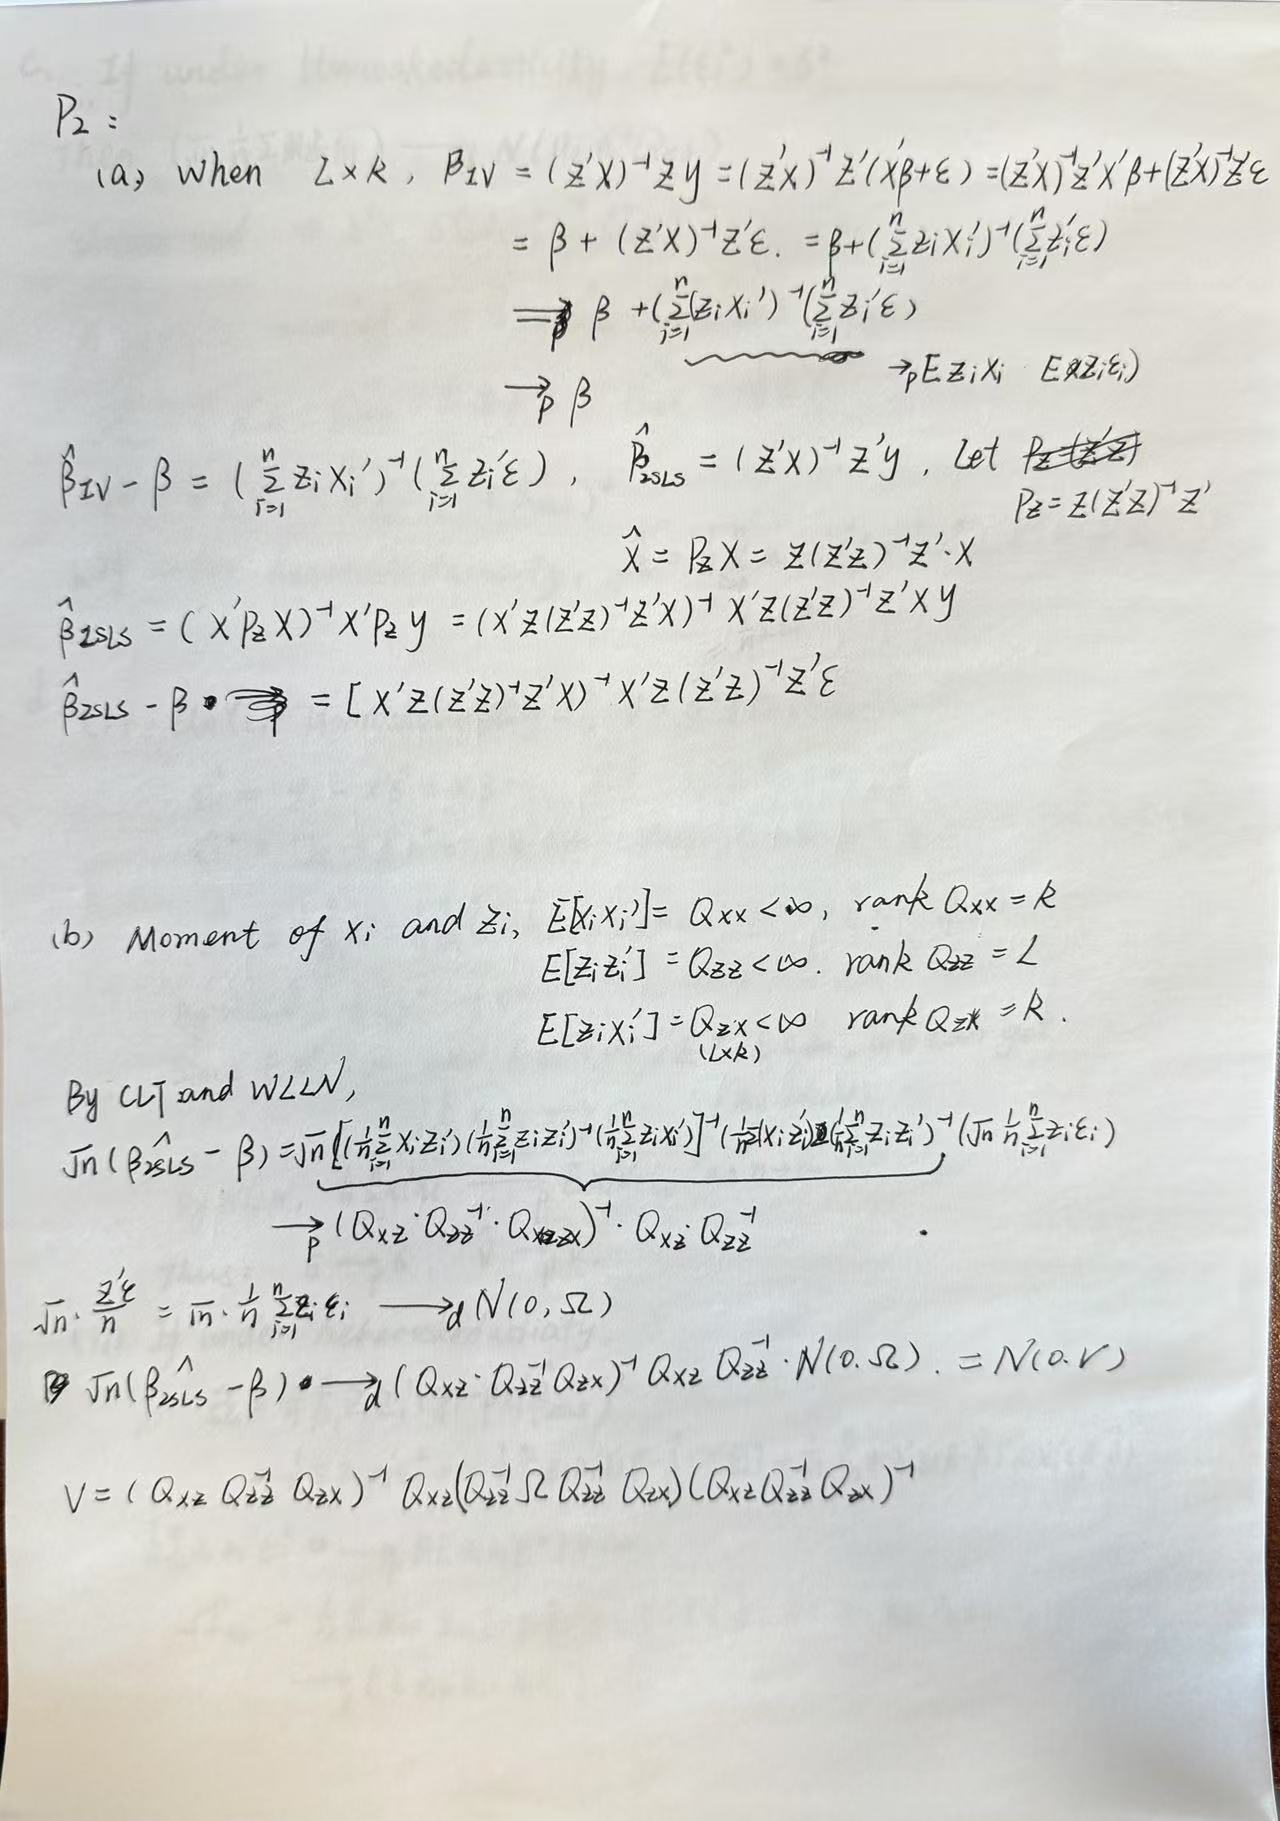 P₂ :
(a) when L×k, β_IV = (Z'X)⁻¹Zy = (Z'X)⁻¹Z'(X'β+ε) = (Z'X)⁻¹Z'X'β+(Z'X)⁻¹Z'ε
= β + (Z'X)⁻¹Z'ε. = β+(∑ⁿᵢ₌₁ zᵢXᵢ')⁻¹(∑ⁿᵢ₌₁ zᵢ'ε)
β +(∑ⁿᵢ₌₁(zᵢXᵢ')⁻¹(∑ⁿᵢ₌₁ zᵢ'ε)
→p E zᵢXᵢ E zᵢεᵢ)
→p β
β̂_IV - β = (∑ⁿᵢ₌₁ zᵢXᵢ')⁻¹(∑ⁿᵢ₌₁ zᵢ'ε), β̂_2SLS = (Z'X)⁻¹Z'y, Let
P_Z = Z(Z'Z)⁻¹Z'
X̂ = P_Z X = Z(Z'Z)⁻¹Z'·X
β̂_2SLS = (X'P_Z X)⁻¹X'P_Z y = (X'Z(Z'Z)⁻¹Z'X)⁻¹ X'Z(Z'Z)⁻¹Z'Xy
β̂_2SLS - β = [X'Z(Z'Z)⁻¹Z'X)⁻¹X'Z(Z'Z)⁻¹Z'ε
(b) Moment of xᵢ and zᵢ, E[xᵢxᵢ'] = Q_XX < ∞, rank Q_XX = k
E[zᵢzᵢ'] = Q_ZZ < ∞. rank Q_ZZ = L
E[zᵢxᵢ'] = Q_ZX < ∞ rank Q_ZX = k.
(L×k)
By CLT and WLLN,
√n(β̂_2SLS - β) = √n[(1/n ∑ⁿᵢ₌₁ xᵢzᵢ')(1/n ∑ⁿᵢ₌₁ zᵢzᵢ')⁻¹(1/n ∑ⁿᵢ₌₁ zᵢxᵢ')]⁻¹(1/n ∑(xᵢzᵢ')(1/n ∑ⁿᵢ₌₁ zᵢzᵢ')⁻¹(√n 1/n ∑ⁿᵢ₌₁ zᵢεᵢ)
→p (Q_XZ·Q_ZZ⁻¹·Q_ZX)⁻¹·Q_XZ·Q_ZZ⁻¹
√n·Z'ε/n = √n·1/n ∑ⁿᵢ₌₁ zᵢεᵢ →d N(0,Ω)
√n(β̂_2SLS - β) →d (Q_XZ·Q_ZZ⁻¹Q_ZX)⁻¹Q_XZ Q_ZZ⁻¹·N(0.Ω). = N(0.V)
V = (Q_XZ Q_ZZ⁻¹ Q_ZX)⁻¹ Q_XZ(Q_ZZ⁻¹ΩQ_ZZ⁻¹ Q_ZX)(Q_XZ Q_ZZ⁻¹Q_ZX)⁻¹